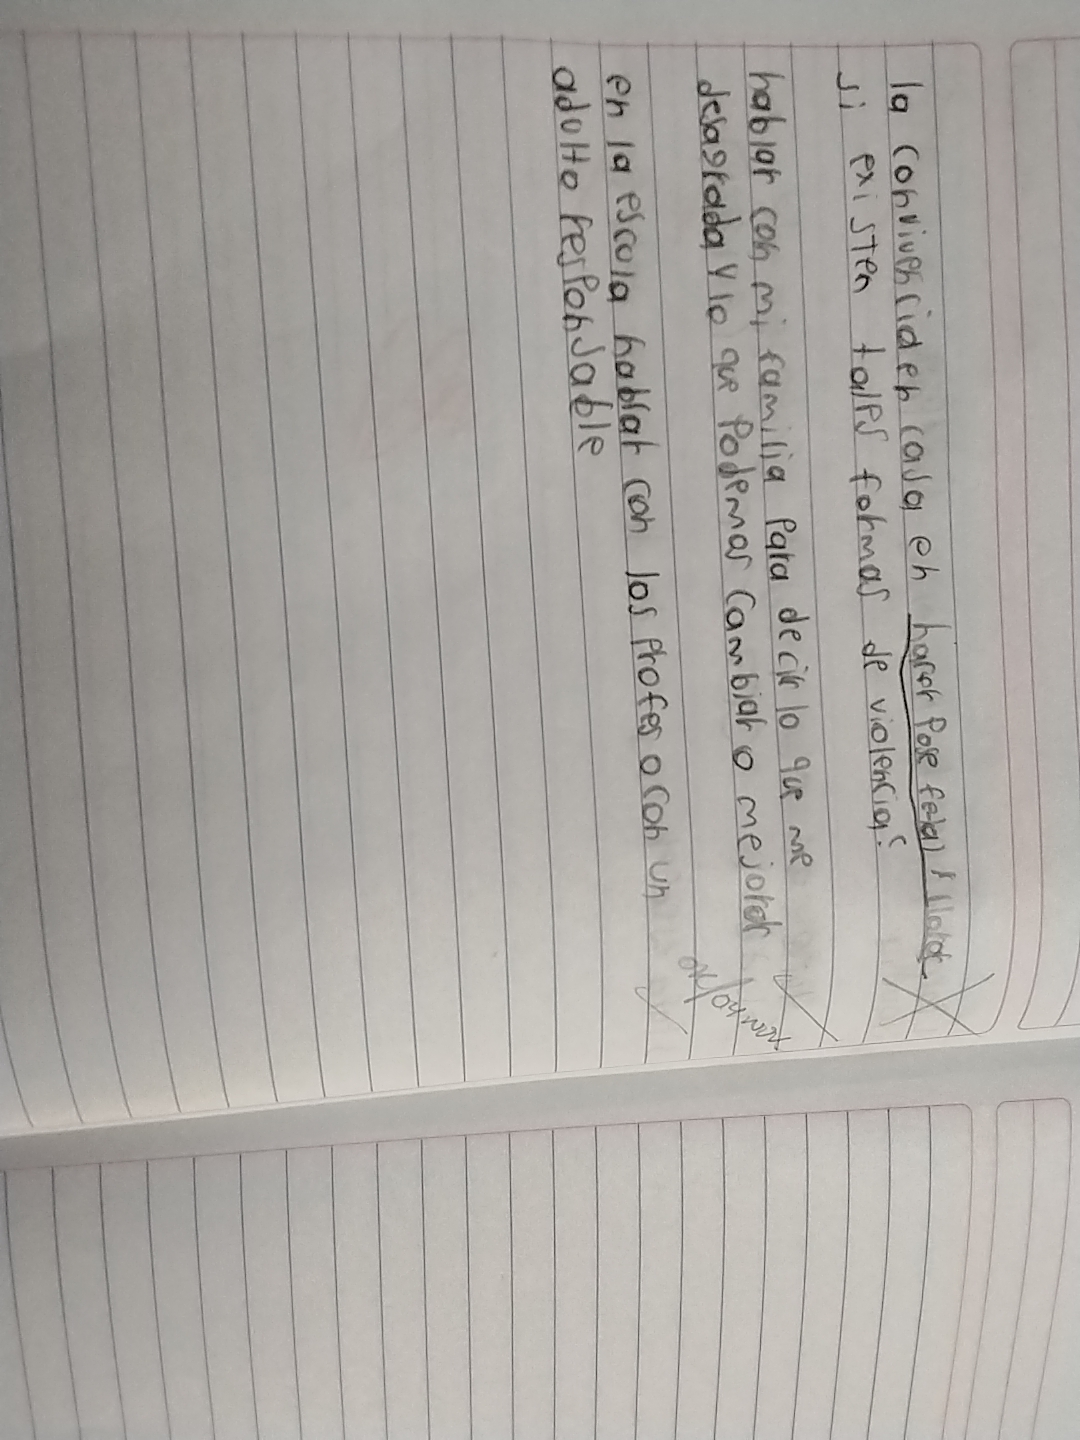 la convivencid en casa en hacer Pose
si existen tales formas de violencia?
hablar con mi familia Para decir lo que me
desagrada y lo que Podemas Cambiar o mejorar
en la escola hablar con los Profes o con un
adulto resPonsable